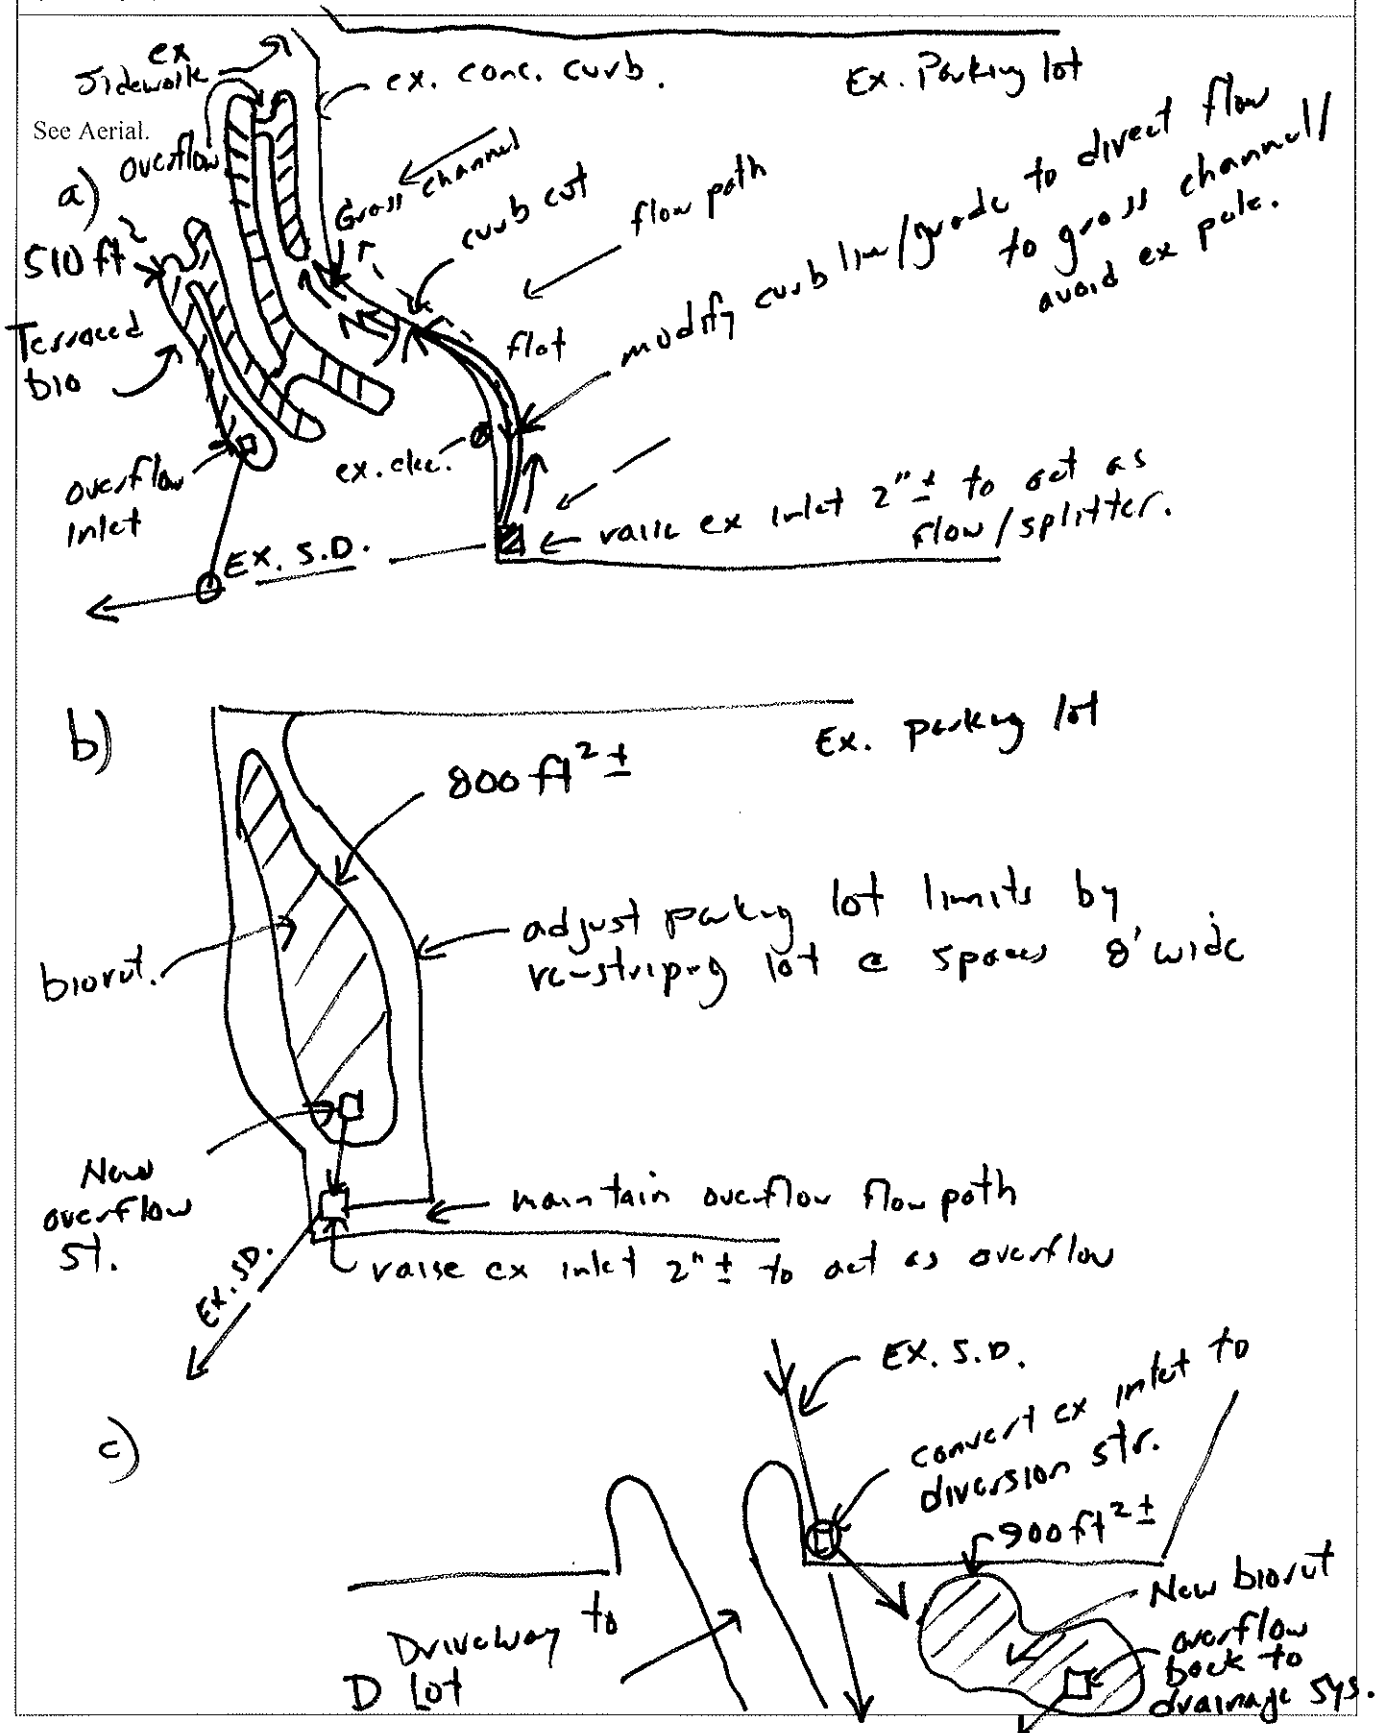 ex
sidewalk
ex. conc. curb.
Ex. Parking lot
See Aerial.
overflow
a)
510 ft²
Grass channel
curb cut
flow path
modify curb line/grade to direct flow
to grass channel/
avoid ex pole.
Terraced
bio
flat
overflow
inlet
ex. elec.
raise ex inlet 2" ± to act as
flow/splitter.
EX. S.D.
b)
Ex. parking lot
800 ft² ±
adjust parking lot limits by
re-striping lot @ spaces 8' wide
bioret.
New
overflow
st.
maintain overflow flow path
raise ex inlet 2" ± to act as overflow
EX. SD.
c)
EX. S.D.
convert ex inlet to
diversion str.
900 ft² ±
New bioret
Driveway to
D Lot
overflow
back to
drainage sys.